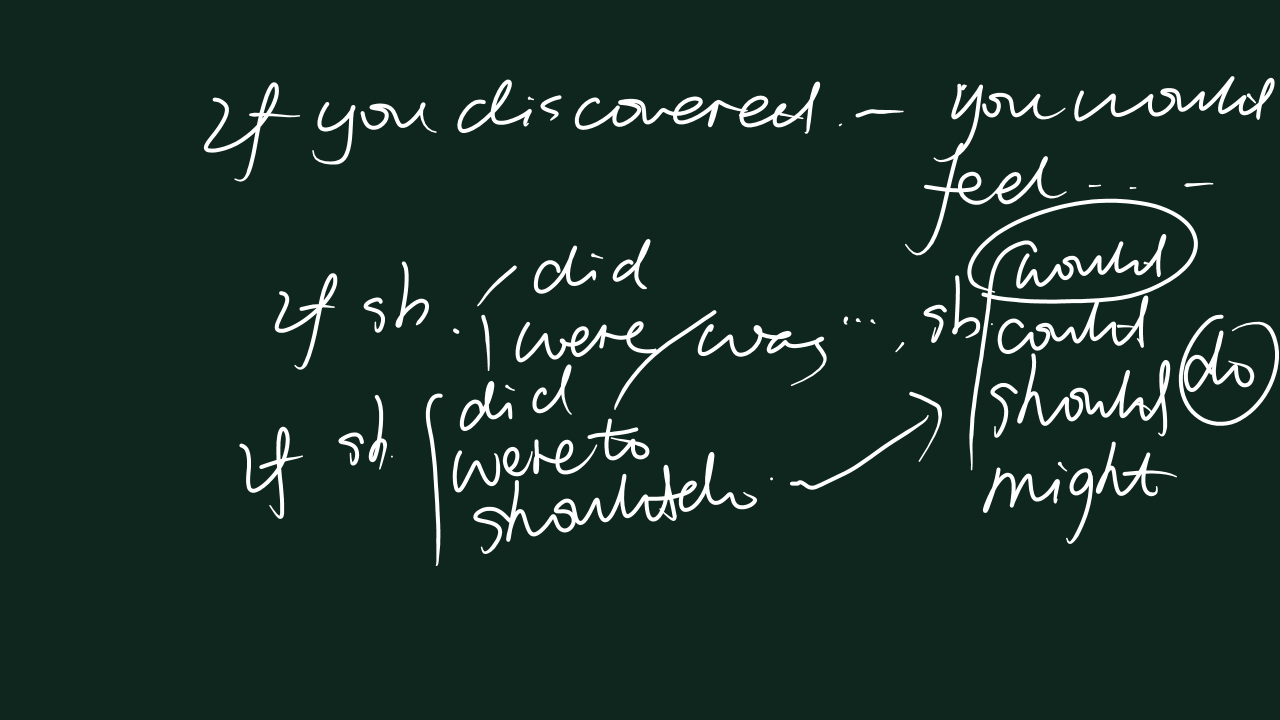 If you discovered. — you would
feel ... -
If sb. did
were/was ..., sb. would
could
should do
might
If sb. did
were to
should do